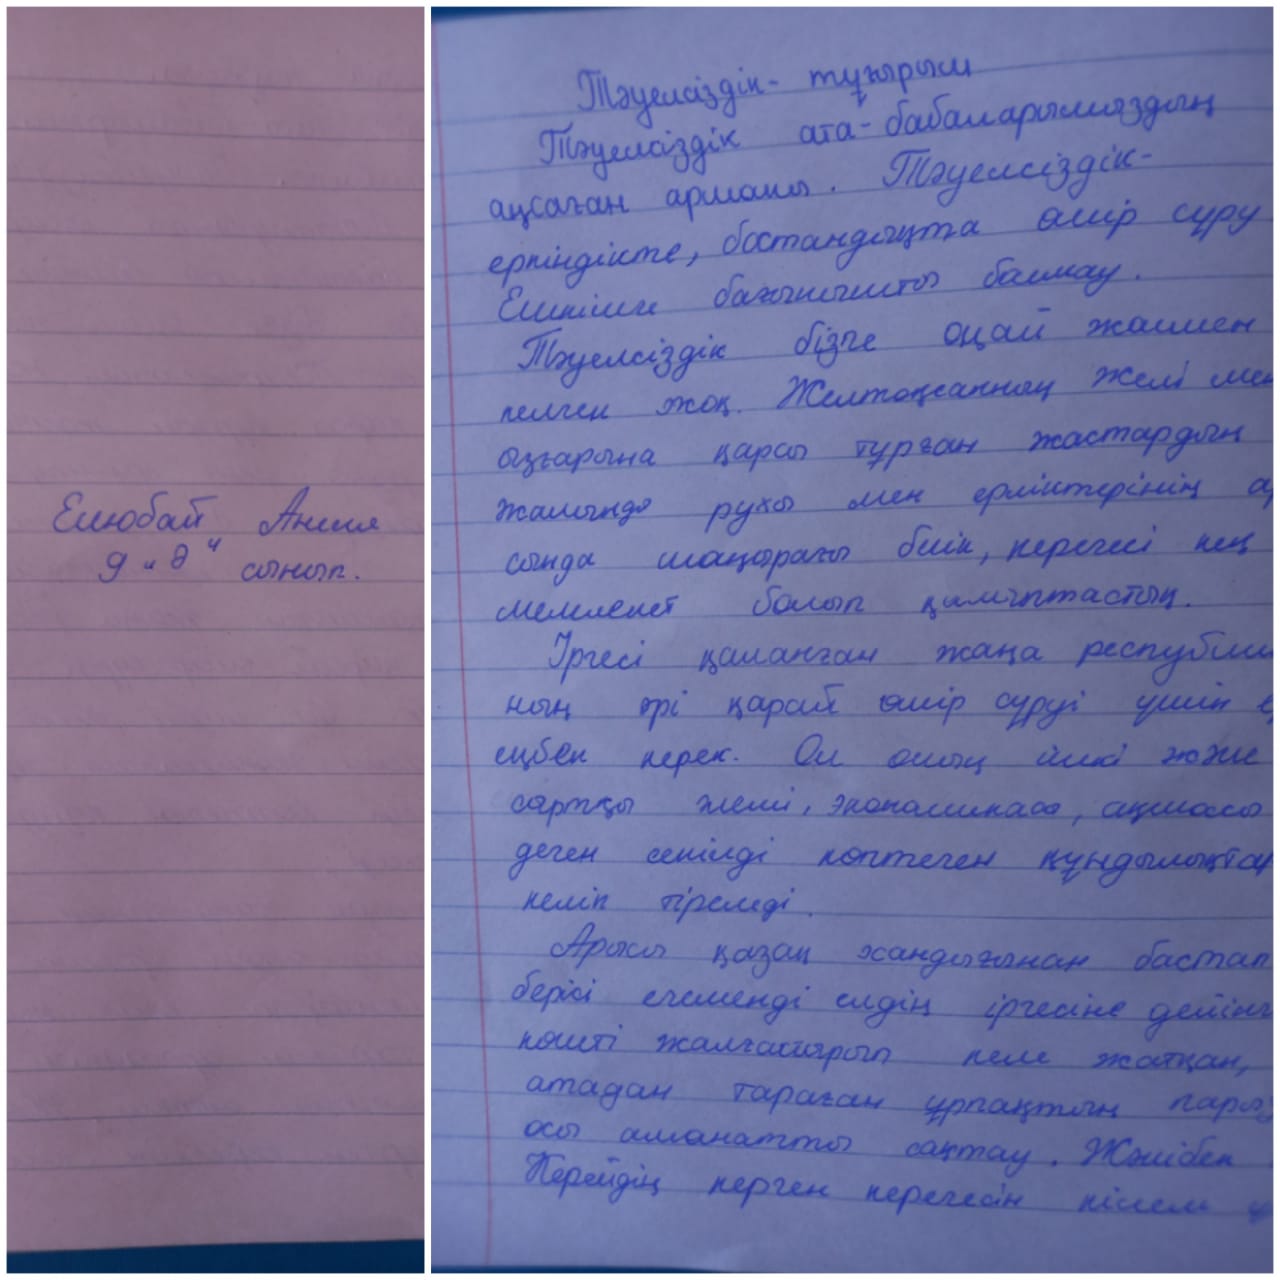 Елюбай Анеля
9 "Ә" сынып.
Тәуелсіздік - тұғырым
Тәуелсіздік ата-бабаларымыздың
аңсаған арманы. Тәуелсіздік-
еркіндікте, бостандықта өмір сүру
Ешкімге бағынышты болмау.
Тәуелсіздік бізге оңай жолмен
келген жоқ. Желтоқсанның желі мен
ызғарына қарсы тұрған жастардың
жалынды рухы мен ерліктерінің ар
сында шаңырағы биік, керегесі кең
мемлекет болып қалыптастық.
Іргесі қаланған жаңа республи
ның әрі қарай өмір сүруі үшін
еңбек керек. Ол оның ішкі және
сыртқы жері, экономикасы, ақшасы
деген секілді көптеген құндылықтар
келіп тіреледі.
Арысы қазақ хандығынан бастап
берісі егеменді елдің іргесіне дейінг
көшті жалғастырып келе жатқан,
атадан тараған ұрпақтың парыз
осы аманатты сақтау. Жәнібек
Керейдің керген керегесін кілем